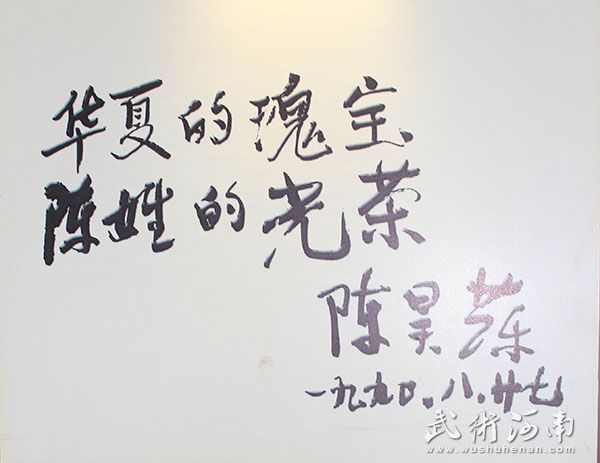 华夏的瑰宝
陈姓的光荣
陈昊苏
一九九〇.八.廿七
武術河南
www.wushuhenan.com